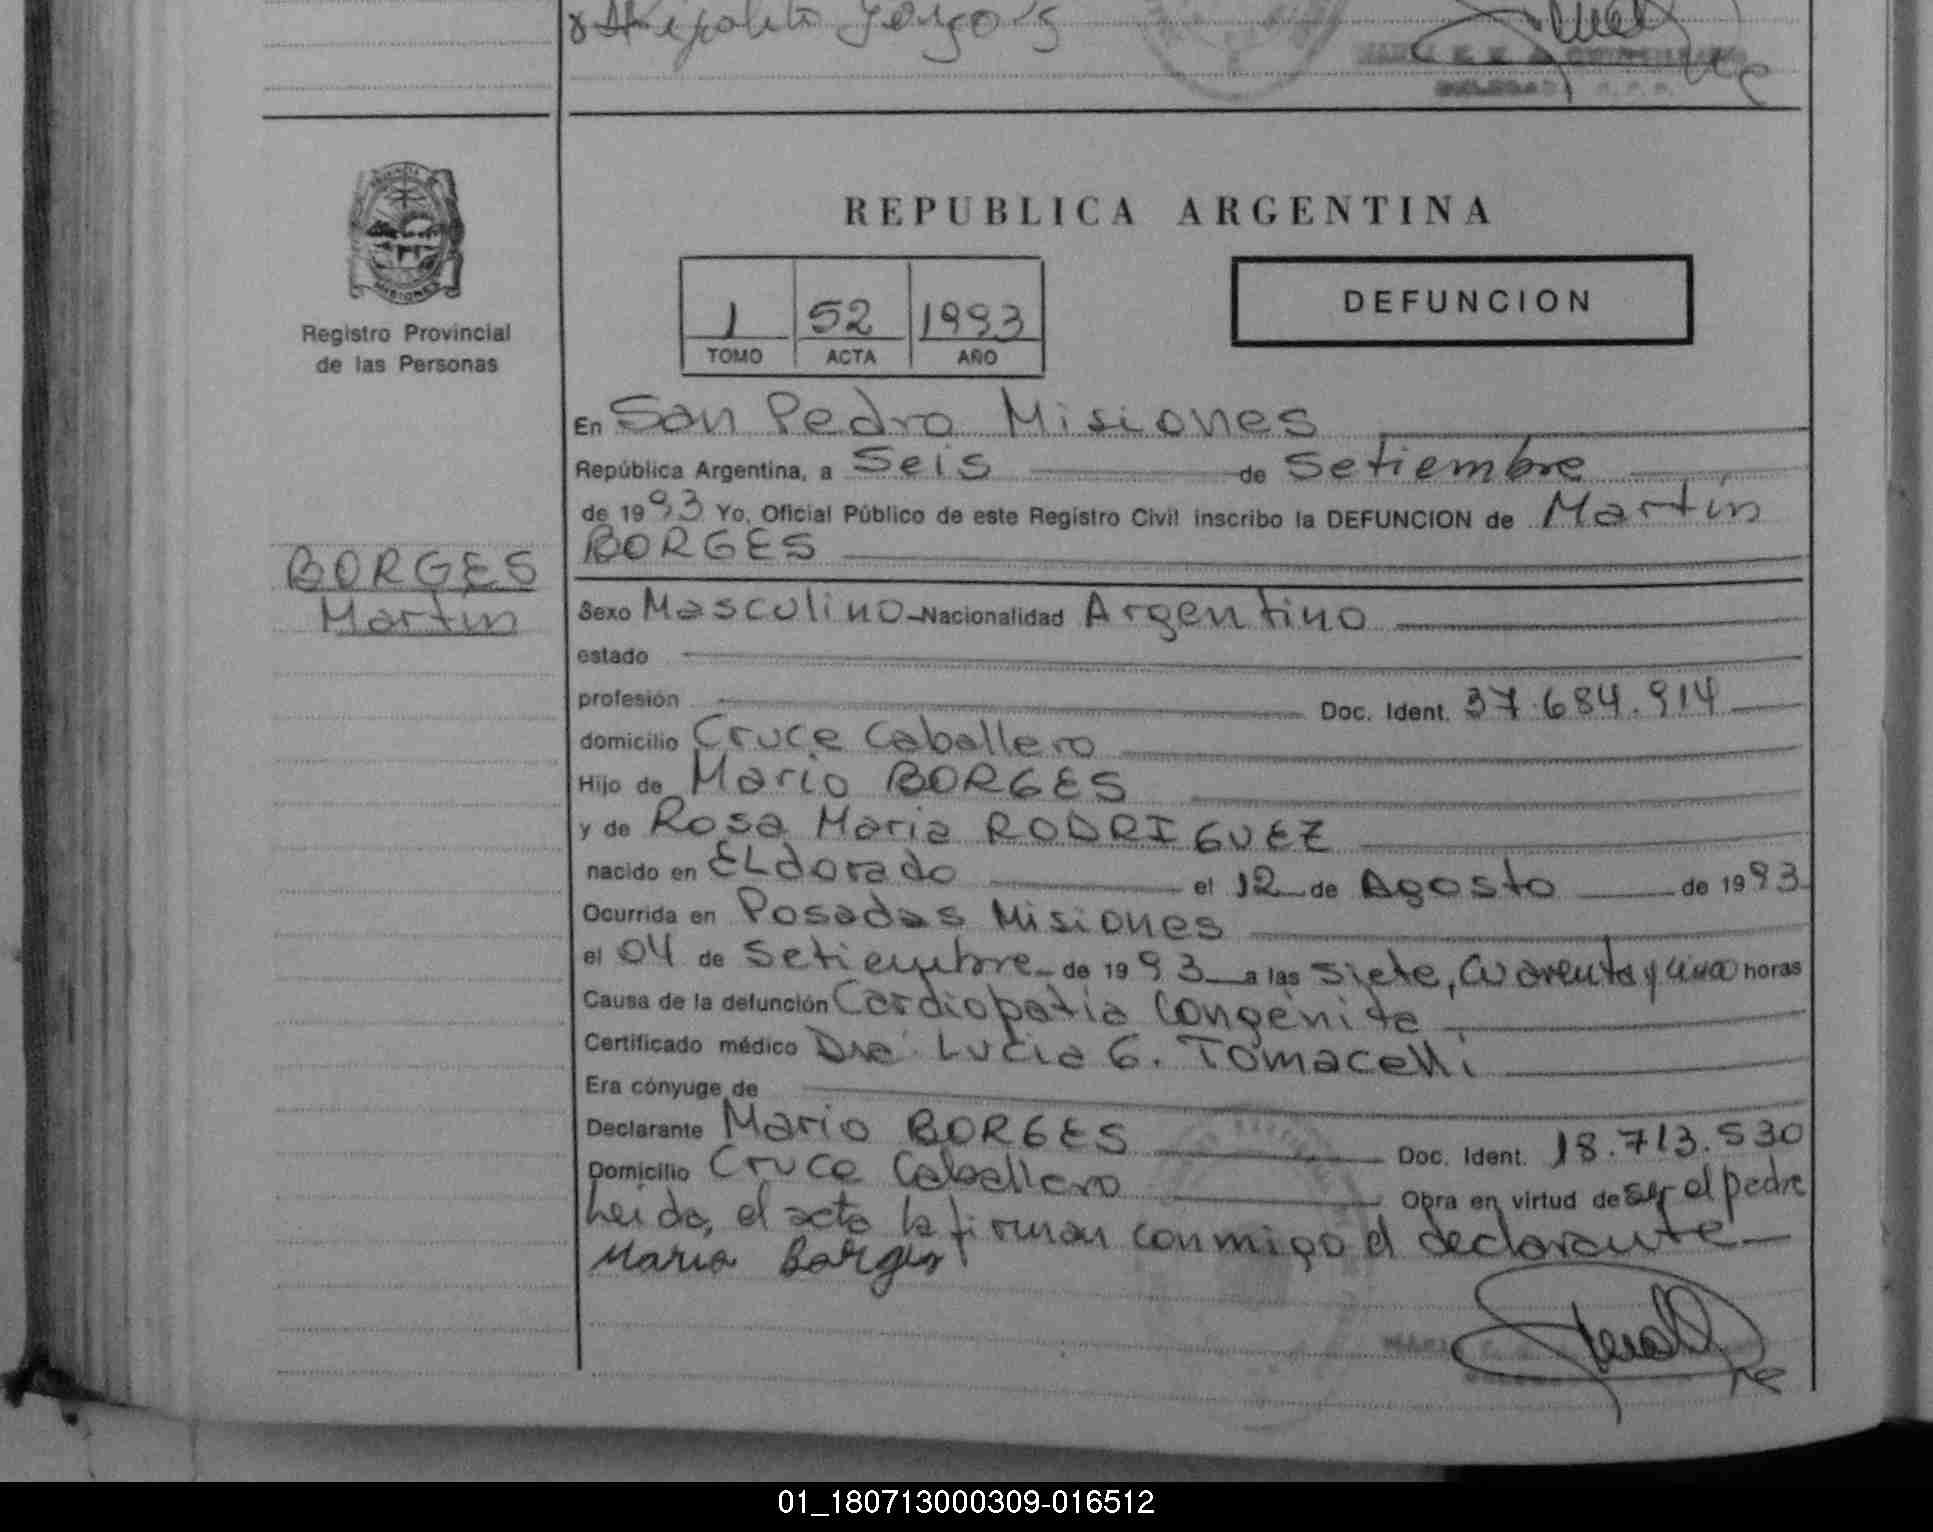 Hipolito
REPUBLICA ARGENTINA
DEFUNCION
1 52 1993
TOMO ACTA AÑO
MISIONES
Registro Provincial
de las Personas
BORGES
Martin
En San Pedro Misiones
República Argentina, a Seis de Setiembre
de 1993 Yo, Oficial Público de este Registro Civil inscribo la DEFUNCION de Martín
BORGES
Sexo Masculino Nacionalidad Argentino
estado
profesión Doc. Ident. 37.684.914
domicilio Cruce Caballero
Hijo de Mario BORGES
y de Rosa Maria RODRIGUEZ
nacido en ELdorado el 12 de Agosto de 1993
Ocurrida en Posadas Misiones
el 04 de Setiembre de 1993 a las siete, cuarenta y cinco horas
Causa de la defunción Cardiopatia Congénita
Certificado médico Dra. Lucia G. Tomacelli
Era cónyuge de
Declarante Mario BORGES Doc. Ident. 18.713.530
Domicilio Cruce Caballero Obra en virtud de ser el padre
Leida, el acta la firman conmigo el declarante
Mario Borges
01_180713000309-016512